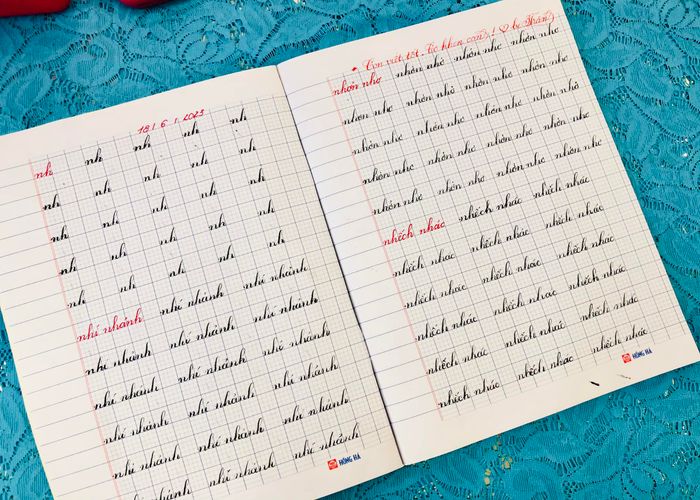 18/6/2023
nh nh nh nh nh
nh nh nh nh nh
nh nh nh nh nh
nh nh nh nh nh
nh nh nh nh nh
nhí nhảnh nhí nhảnh nhí nhảnh
nhí nhảnh nhí nhảnh nhí nhảnh
nhí nhảnh nhí nhảnh nhí nhảnh
nhí nhảnh nhí nhảnh nhí nhảnh
nhí nhảnh nhí nhảnh nhí nhảnh
nhí nhảnh nhí nhảnh
HỒNG HÀ
Con viết tốt. Cô khen con! ♡ bé
nhơn nhơ nhơn nhơ nhơn nhơ nhơn nhơ
nhơn nhơ nhơn nhơ nhơn nhơ nhơn nhơ
nhơn nhơ nhơn nhơ nhơn nhơ nhơn nhơ
nhơn nhơ nhơn nhơ nhơn nhơ nhơn nhơ
nhơn nhơ nhơn nhơ nhơn nhơ nhơn nhơ
nhếch nhác nhếch nhác nhếch nhác
nhếch nhác nhếch nhác nhếch nhác
nhếch nhác nhếch nhác nhếch nhác
nhếch nhác nhếch nhác nhếch nhác
nhếch nhác nhếch nhác nhếch nhác
nhếch nhác nhếch nhác nhếch nhác
HỒNG HÀ